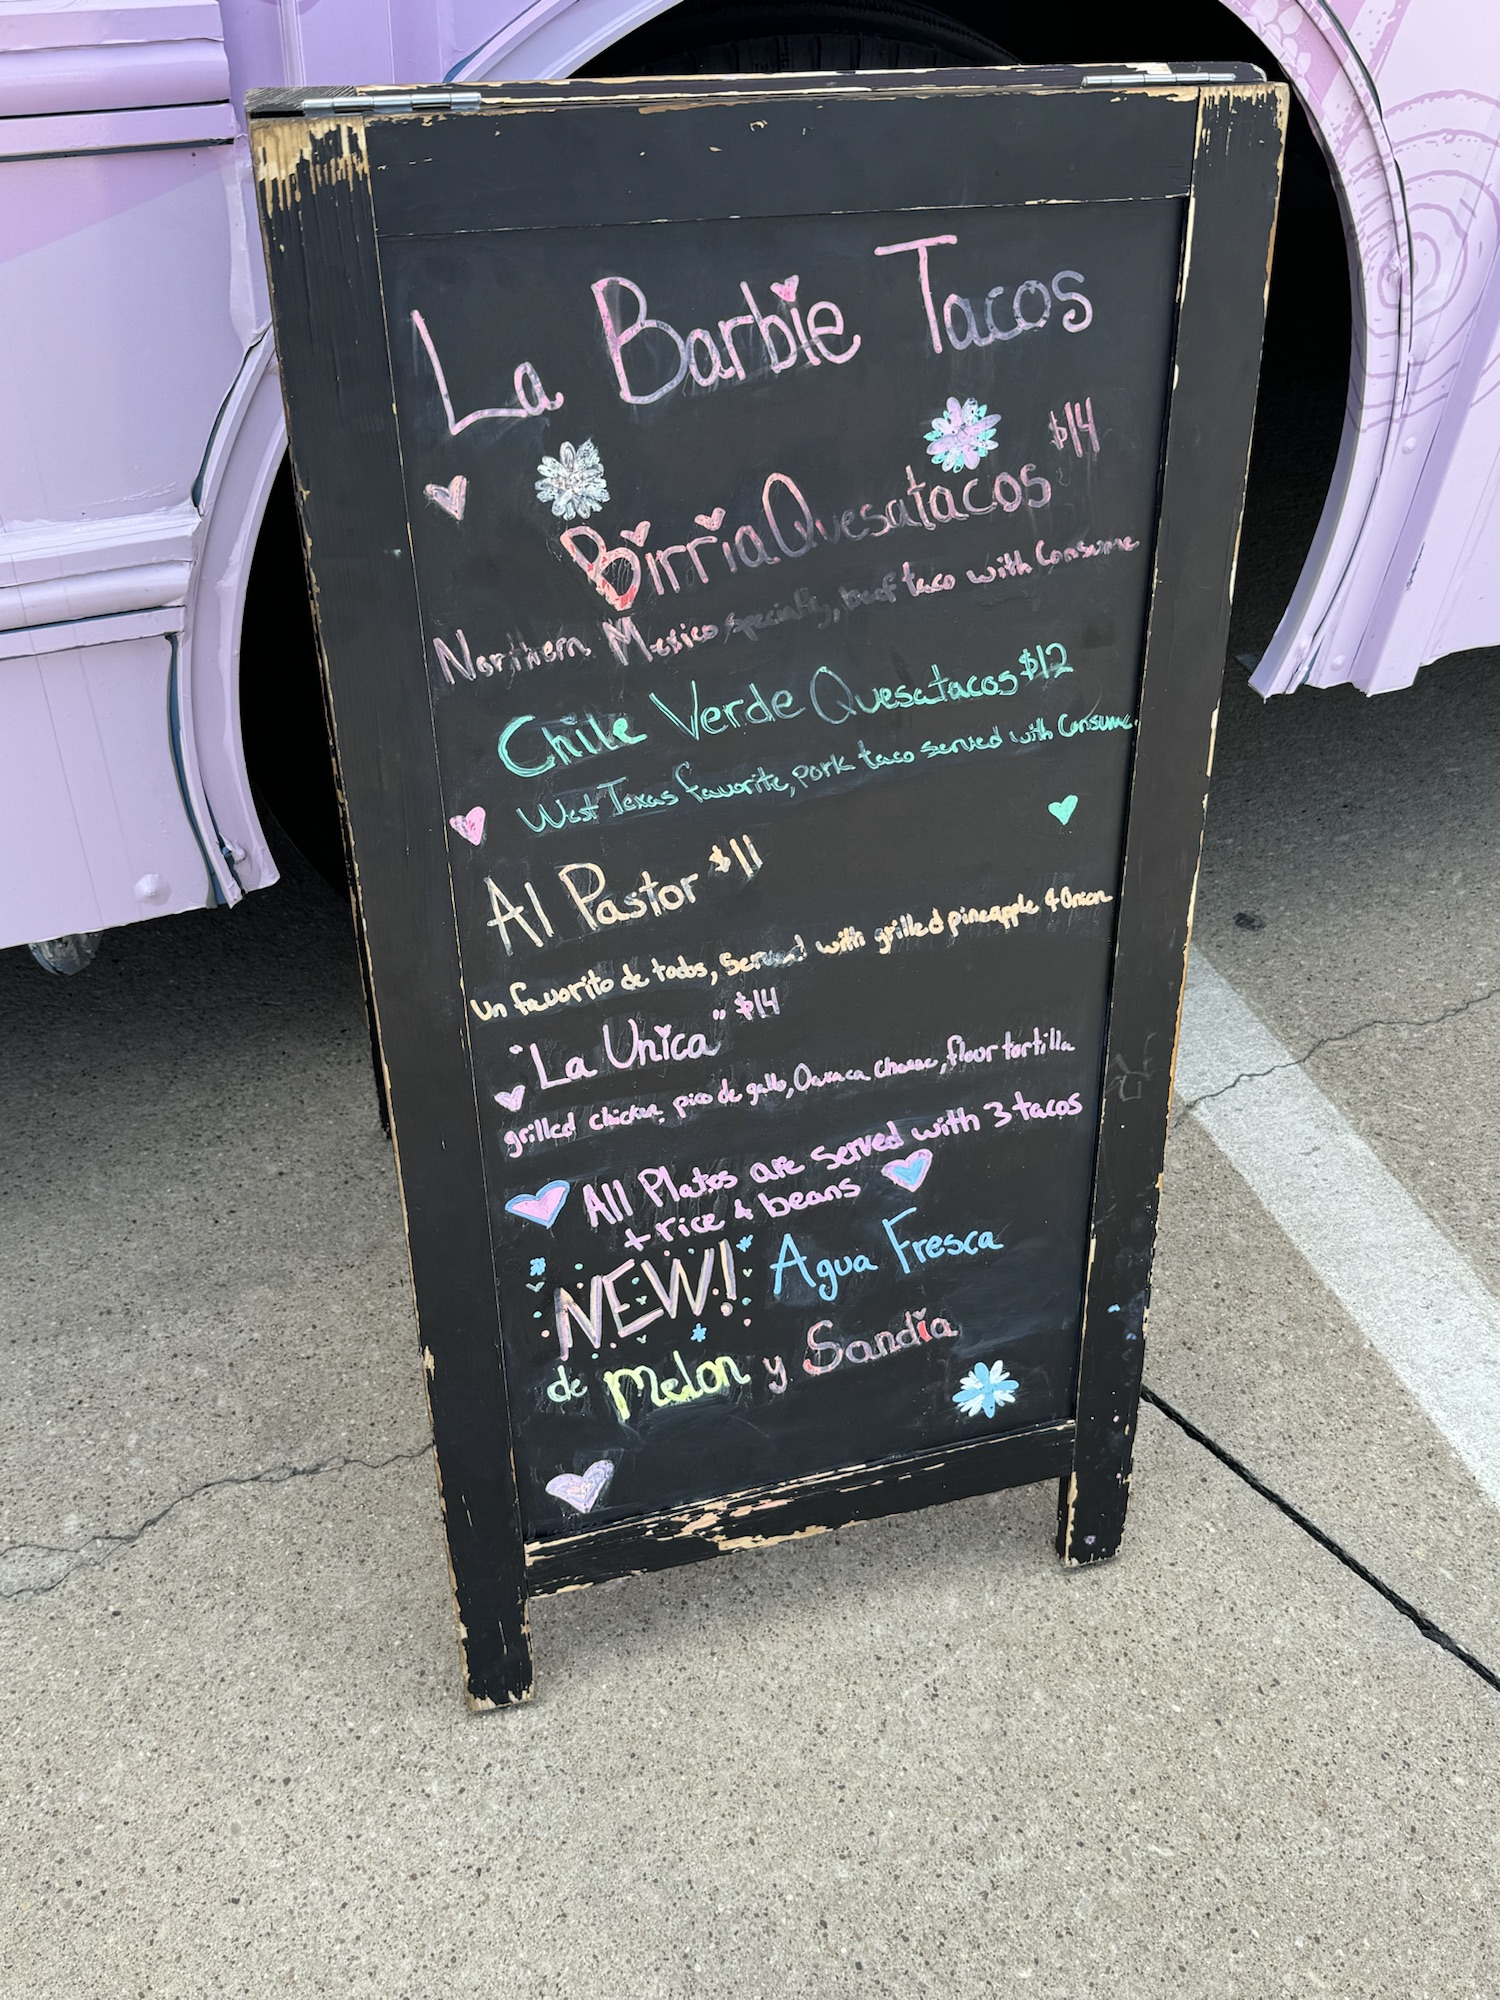 La Barbie Tacos
Birria Quesatacos $14
Northern Mexico specialty, beef taco with Consume
Chile Verde Quesatacos $12
West Texas favorite, pork taco served with Consume.
Al Pastor $11
un favorito de todos, served with grilled pineapple & Onion
"La Unica" $14
grilled chicken, pico de gallo, Oaxaca cheese, flour tortilla
All Plates are served with 3 tacos
+ rice & beans
NEW! Agua Fresca
de Melon y Sandia